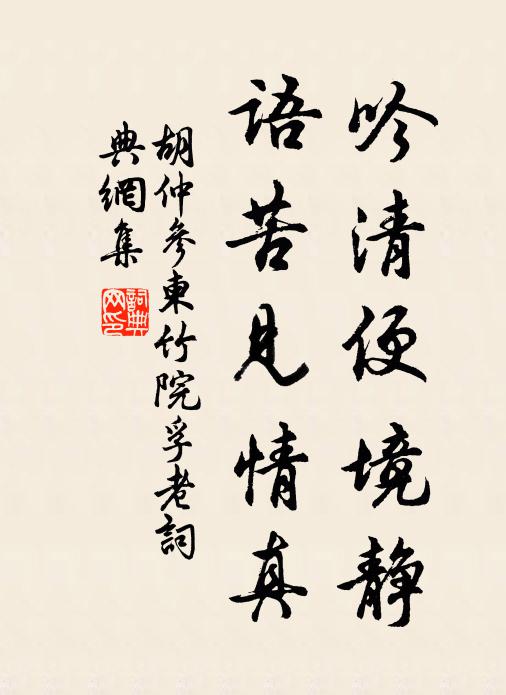 吟清便境静
语苦见情真
胡仲参东竹院孚老詞
典網集
詞典網印